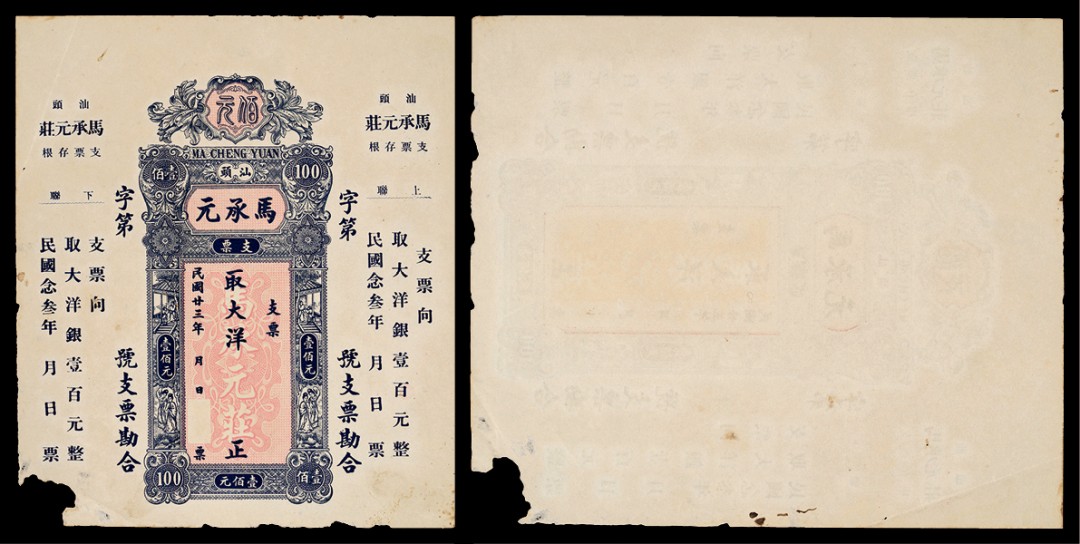 汕頭
馬承元莊
支票存根
上聯
支票向
取大洋銀壹百元整
民國念叁年 月 日 票
字第 號支票勘合
佰元
MA CHENG YUAN
100
汕頭
壹佰
馬承元
支票
壹佰元
支票
取大洋 正
馬承元莊
民國廿三年 月 日 票
壹佰元
壹佰
壹佰元
100
字第 號支票勘合
汕頭
馬承元莊
支票存根
下聯
支票向
取大洋銀壹百元整
民國念叁年 月 日 票